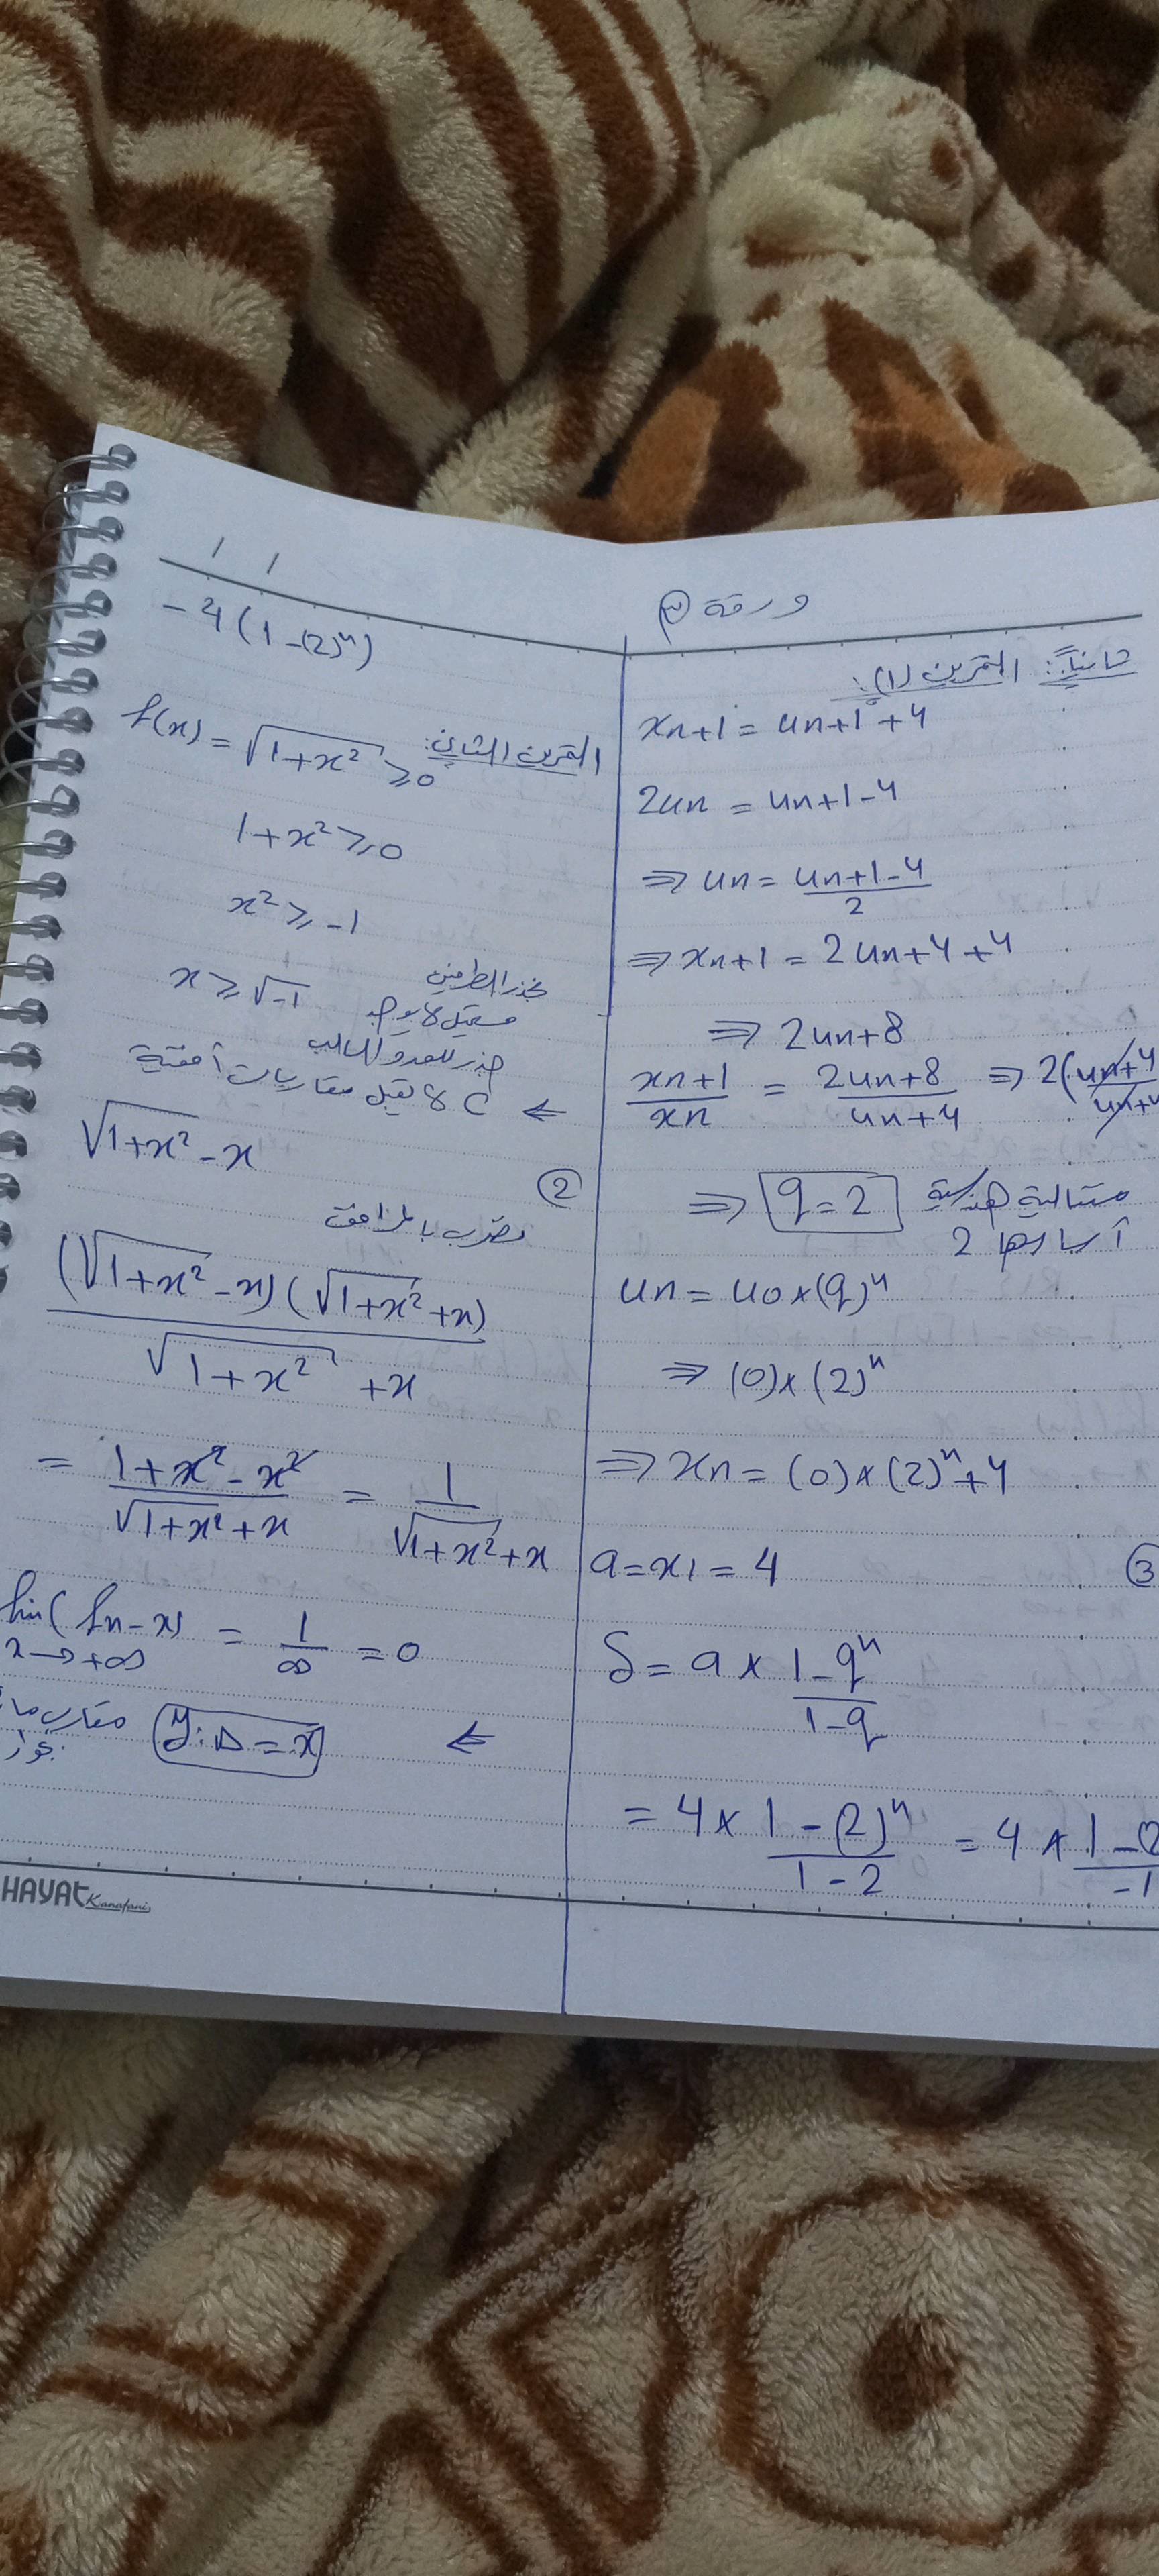 ورقة ٣
ثانياً: التمرين (1):
xn+1 = un+1 + 4
2un = un+1 - 4
⇒ un = (un+1 - 4)/2
⇒ xn+1 = 2un + 4 + 4
⇒ 2un + 8
xn+1/xn = (2un+8)/(un+4) ⇒ 2(un+4/un+4
⇒ q = 2 متتالية هندسية
أساسها 2
un = u0 × (q)ⁿ
⇒ (0) × (2)ⁿ
⇒ xn = (0) × (2)ⁿ + 4
a = x1 = 4 ③
S = a × (1 - qⁿ)/(1 - q)
= 4 × (1 - (2)ⁿ)/(1 - 2) = 4 × (1 - (2)/(-1)
-4(1 - (2)ⁿ)
التمرين الثاني: f(x) = √(1+x²) ≥ 0
1 + x² ≥ 0
x² ≥ -1
x ≥ √-1 نجذر الطرفين
مستحيل لا يوجد
جذر للعدد السالب
⇐ C لا تقبل مقاربات أفقية
√(1+x²) - x
②
نضرب بالمرافق
(√(1+x²) - x)(√(1+x²) + x)/(√(1+x²) + x)
= (1 + x² - x²)/(√(1+x²) + x) = 1/(√(1+x²) + x)
lim(fx - x) x→+∞ = 1/∞ = 0
⇐ y:Δ = x مقارب
HAYAT Kanafani